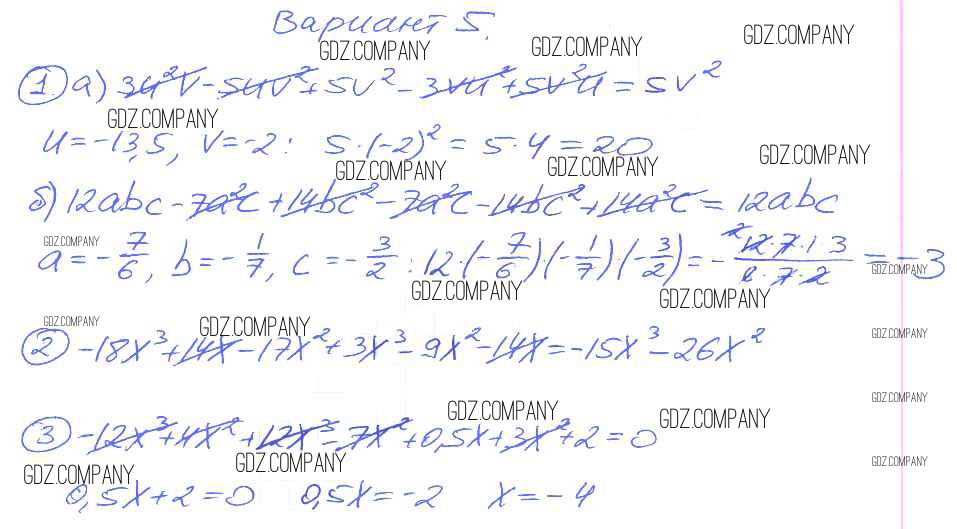 Вариант 5.
GDZ.COMPANY GDZ.COMPANY GDZ.COMPANY
① а) 3u²v - 5uv² + 5v² - 3vu² + 5v²u = 5v²
GDZ.COMPANY
u = -13,5, v = -2: 5·(-2)² = 5·4 = 20
GDZ.COMPANY GDZ.COMPANY GDZ.COMPANY
б) 12abc - 7a²c + 14bc² - 7a²c - 14bc² + 14a²c = 12abc
GDZ.COMPANY
a = -7/6, b = -1/7, c = -3/2: 12·(-7/6)·(-1/7)·(-3/2) = - ²12·7·1·3/6·7·2 = -3
GDZ.COMPANY
GDZ.COMPANY GDZ.COMPANY
GDZ.COMPANY GDZ.COMPANY GDZ.COMPANY
② -18x³ + 14x - 17x² + 3x³ - 9x² - 14x = -15x³ - 26x²
GDZ.COMPANY
GDZ.COMPANY GDZ.COMPANY
③ -12x³ + 4x² + 12x³ - 7x² + 0,5x + 3x² + 2 = 0
GDZ.COMPANY GDZ.COMPANY GDZ.COMPANY
0,5x + 2 = 0 0,5x = -2 x = -4